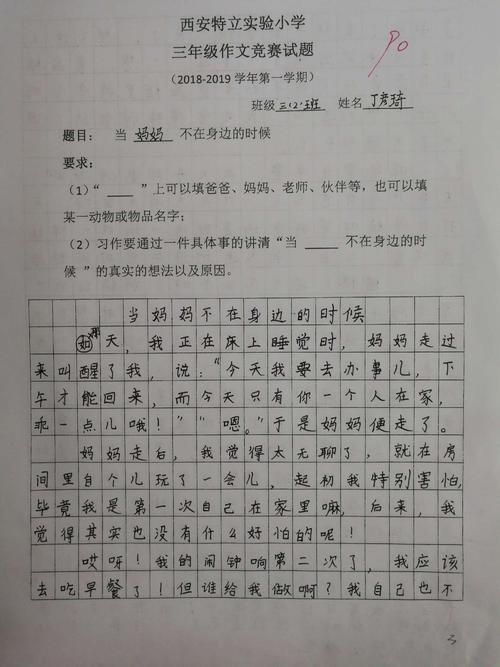 西安特立实验小学
三年级作文竞赛试题
90
（2018-2019 学年第一学期）
班级 三(2)班 姓名 丁彦琦
题目： 当 妈妈 不在身边的时候
要求：
（1）“ ____ ”上可以填爸爸、妈妈、老师、伙伴等，也可以填
某一动物或物品名字；
（2）习作要通过一件具体事的讲清“当 ____ 不在身边的时
候 ”的真实的想法以及原因。
当妈妈不在身边的时候
那天，我正在床上睡觉时，妈妈走过
来叫醒了我，说：“今天我要去办事儿，下
午才能回来，而今天只有你一个人在家，
乖一点儿哦！”“嗯。”于是妈妈便走了。
妈妈走后，我觉得太无聊了，就在房
间里自个儿玩了一会儿，起初我特别害怕，
毕竟我是第一次自己在家里嘛，后来，我
觉得其实也没有什么好怕的呢！
哎呀！我的闹钟响第二次了，我应该
去吃早餐了！但谁给我做啊？我自己也不
3